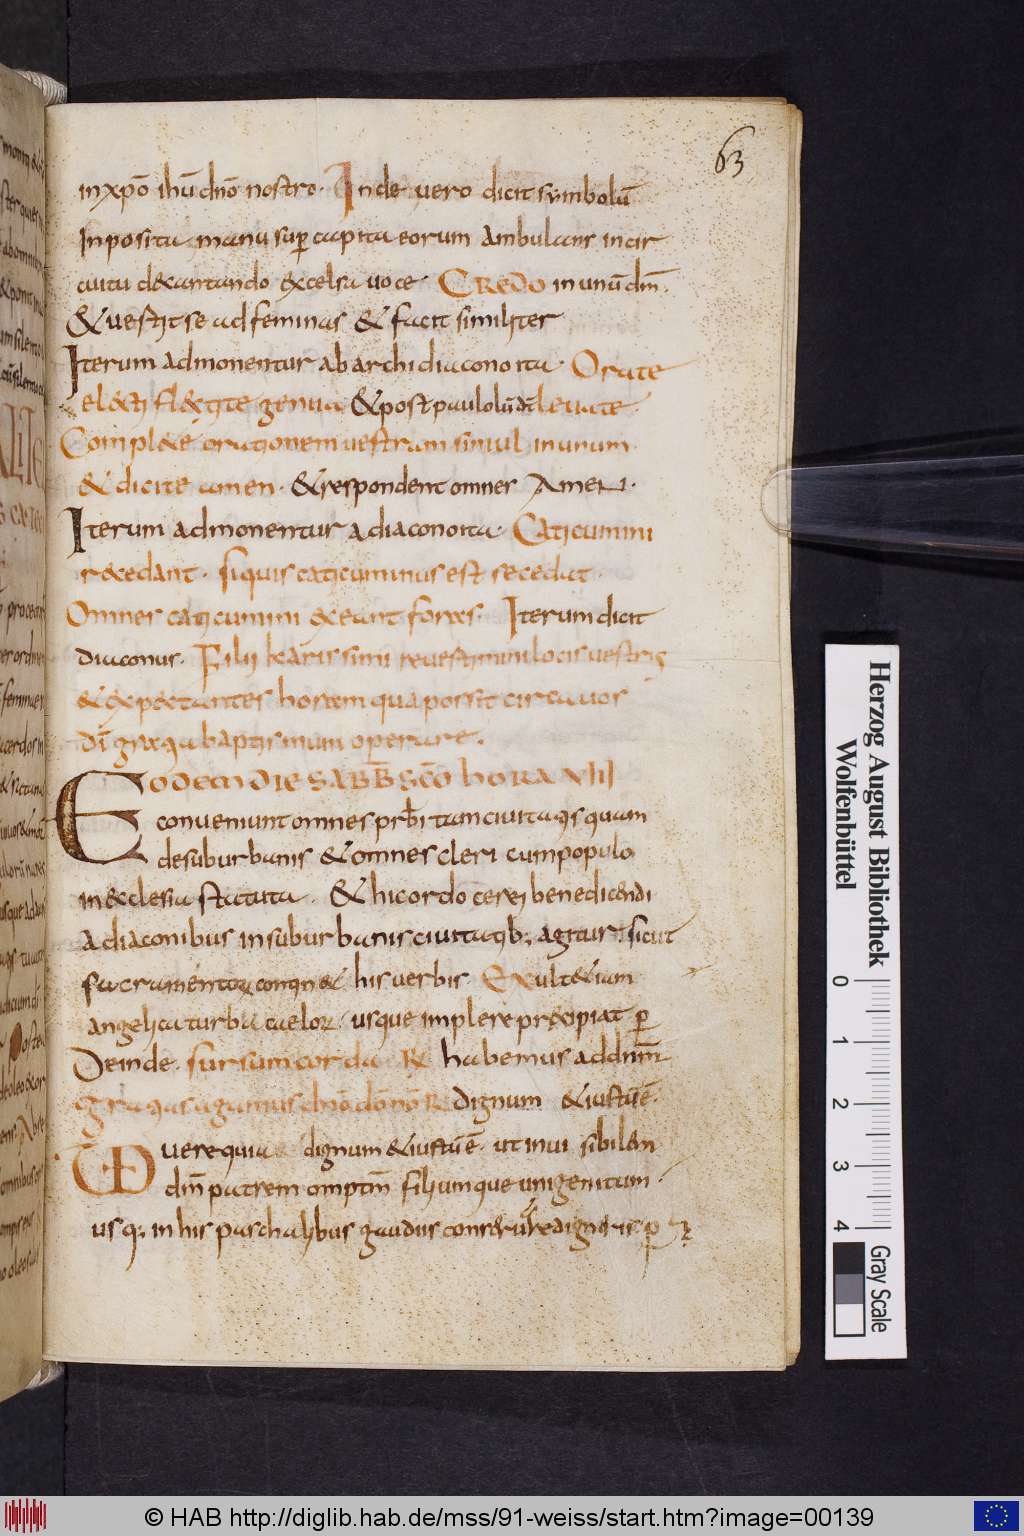 63
in xpō ihū dnō nostro. Inde vero dicit symbolū
Inposita manu sup capita eorum ambulans incir
cuitu decantando excelsa uoce. CREDO in unū dm̄.
& uestit se ad feminas & facit similiter
Iterum admonentur ab archidiacono ita. Orate
electi flectite genua & post paululū dt leuate.
Complete orationem uestram simul in unum.
& dicite amen. & respondent omnes AmeN.
Iterum admonentur a diacono ita. Caticumini
recedant. siquis caticuminus est secedat.
Omnes caticumini exeant foras. Iterum dicit
diaconus. Filii karissimi reuertimini locis uestris
& expectantes horam qua possit circa uos
dī gratia baptismum operare.
EODEM DIE SABB SCO HORA VIII
conueniunt omnes prbi tam ciuitatis quam
de suburbanis & omnes cleri cum populo
in ecclesia statuta. & hic ordo cerei benedicendi
a diaconibus in suburbanis ciuitatib; agitur sicut
sacramentorum continet his uerbis. Exultet iam
angelica turba caelorum. usque implere precipiat p
Deinde. sursum corda. R habemus ad dnm
gratias agamus dnō dō nrō R dignum & iustū ē.
UD uere quia dignum & iustū ē. ut inuisibilem
dm̄ patrem omptm̄ filiumque unigenitum.
usq; in his paschalibus gaudiis conseruare digneris. p
© HAB http://diglib.hab.de/mss/91-weiss/start.htm?image=00139
Herzog August Bibliothek
Wolfenbüttel
0 1 2 3 4
Gray Scale